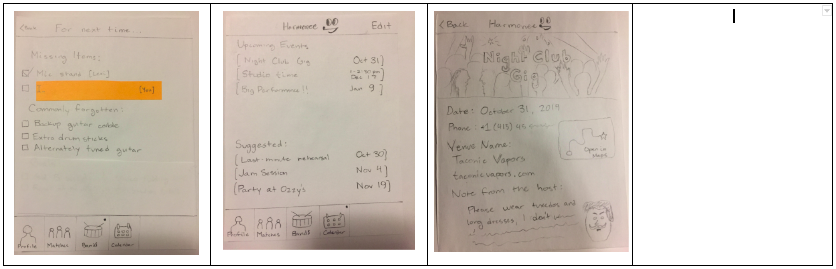 <Back For next time...
Missing Items:
Mic stand [Sam]
[You]
Commonly forgotten:
Backup guitar cable
Extra drum sticks
Alternately tuned guitar
Profile Matches Band Calendar
Harmonee Edit
Upcoming Events
[Night Club Gig Oct 31]
[Studio time Dec 17]
[Big Performance!! Jan 9]
Suggested:
[Last-minute rehearsal Oct 30]
[Jam Session Nov 4]
[Party at Ozzy's Nov 19]
Profile Matches Band Calendar
<Back Harmonee
Night Club
Gig
Date: October 31, 2019
Phone: +1 (413)
Venue Name:
Taconic Vapors
taconicvapors.com
Open in
Maps
Note from the host:
Please wear tuxedos and
long dresses, I don't